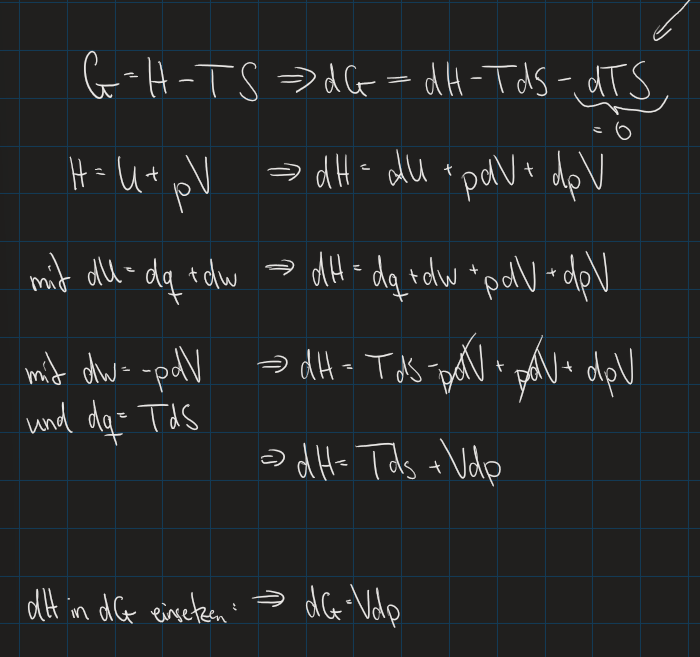 G = H - TS ⇒ dG = dH - TdS - dTS
= 0
H = U + pV ⇒ dH = dU + pdV + dpV
mit dU = dq + dw ⇒ dH = dq + dw + pdV + dpV
mit dw = -pdV ⇒ dH = Tds - pdV + pdV + dpV
und dq = TdS
⇒ dH = Tds + Vdp
dH in dG einsetzen: ⇒ dG = Vdp